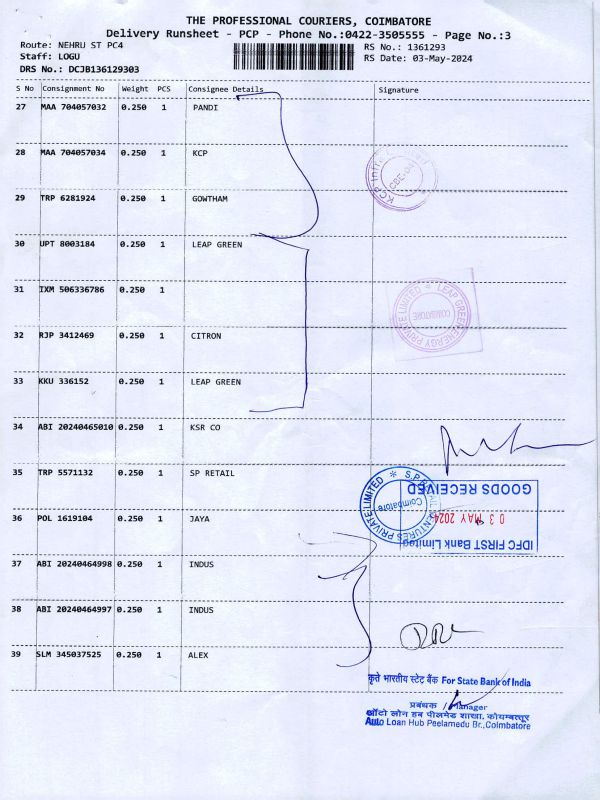 THE PROFESSIONAL COURIERS, COIMBATORE
Delivery Runsheet - PCP - Phone No.:0422-3505555 - Page No.:3
Route: NEHRU ST PC4 RS No.: 1361293
Staff: LOGU RS Date: 03-May-2024
DRS No.: DCJB136129303
S No Consignment No Weight PCS Consignee Details Signature
27 MAA 704057032 0.250 1 PANDI
28 MAA 704057034 0.250 1 KCP
KCP Infra Limited
CBE-04
29 TRP 6281924 0.250 1 GOWTHAM
30 UPT 8003184 0.250 1 LEAP GREEN
31 IXM 506336786 0.250 1
LEAP GREEN ENERGY PRIVATE LIMITED
COIMBATORE
32 RJP 3412469 0.250 1 CITRON
33 KKU 336152 0.250 1 LEAP GREEN
34 ABI 20240465010 0.250 1 KSR CO
35 TRP 5571132 0.250 1 SP RETAIL
S.P. RETAIL VENTURES PRIVATE LIMITED
Coimbatore
GOODS RECEIVED
03 MAY 2024
IDFC FIRST Bank Limited
36 POL 1619104 0.250 1 JAYA
37 ABI 20240464998 0.250 1 INDUS
38 ABI 20240464997 0.250 1 INDUS
39 SLM 345037525 0.250 1 ALEX
कृते भारतीय स्टेट बैंक For State Bank of India
प्रबंधक / Manager
ऑटो लोन हब पीलमेड शाखा, कोयम्बत्तूर
Auto Loan Hub Peelamedu Br.,Coimbatore